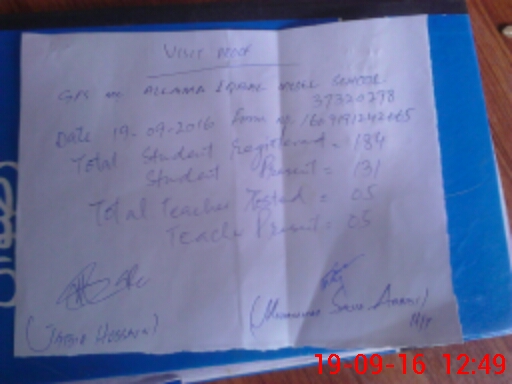 VISIT PROOF
GPS ALLAMA IQBAL MODEL SCHOOL
37320278
Date 19-09-2016 Form no.
Total Student Registered = 184
Student Present = 131
Total Teacher Posted = 05
Teacher Present = 05
HUSSAIN)
(Muhammad
19-09-16 12:49